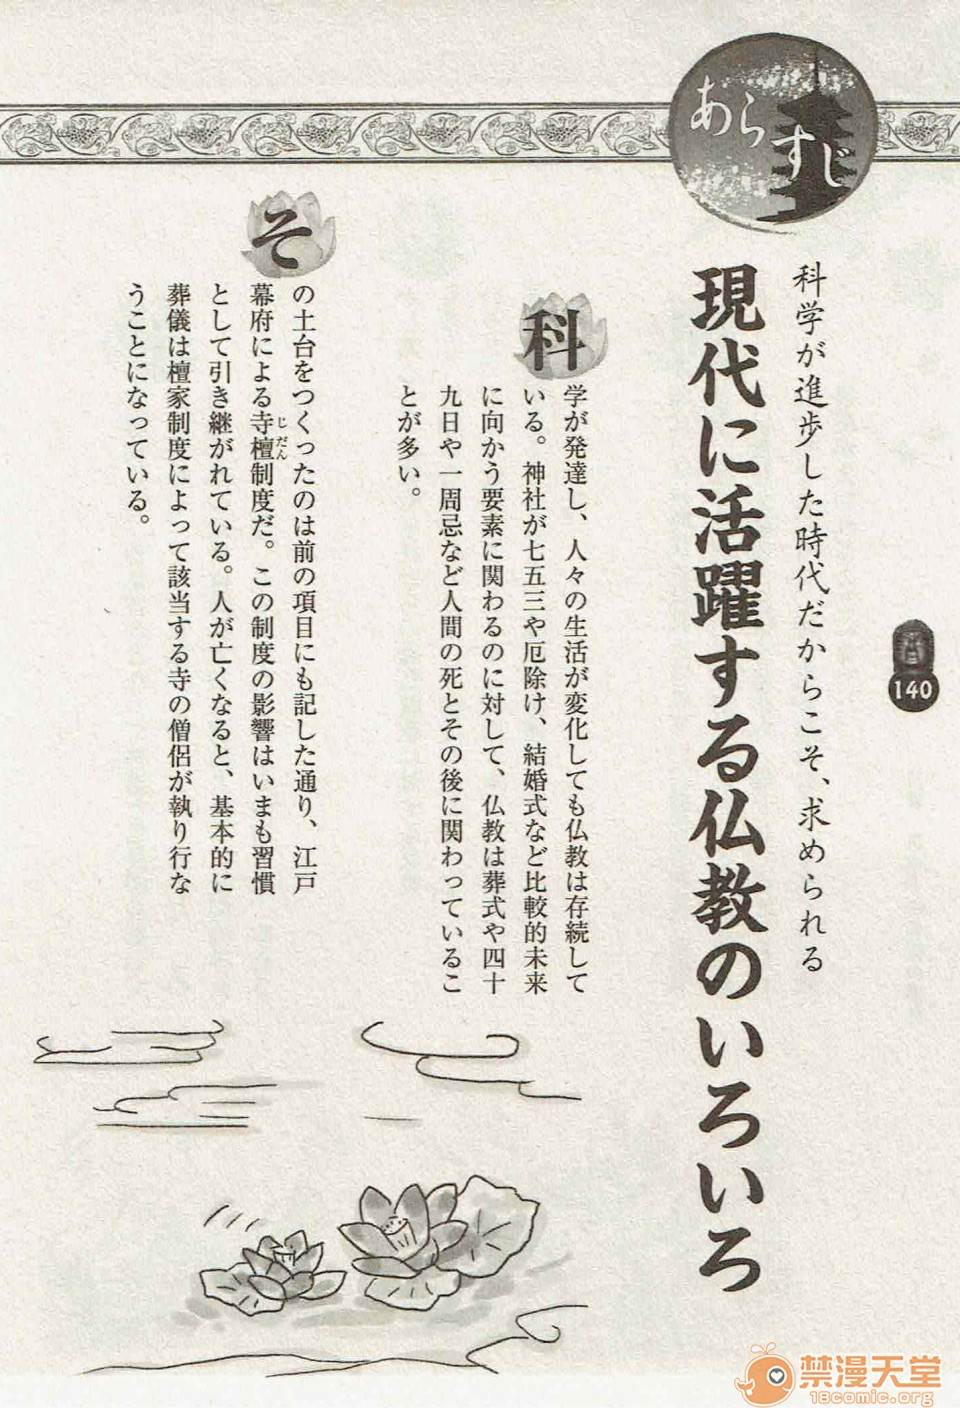 あらすじ
科学が進歩した時代だからこそ、求められる
現代に活躍する仏教のいろいろ
140
科学が発達し、人々の生活が変化しても仏教は存続して
いる。神社が七五三や厄除け、結婚式など比較的未来
に向かう要素に関わるのに対して、仏教は葬式や四十
九日や一周忌など人間の死とその後に関わっているこ
とが多い。
その土台をつくったのは前の項目にも記した通り、江戸
幕府による寺檀制度だ。この制度の影響はいまも習慣
じだん
として引き継がれている。人が亡くなると、基本的に
葬儀は檀家制度によって該当する寺の僧侶が執り行な
うことになっている。
禁漫天堂
18comic.org